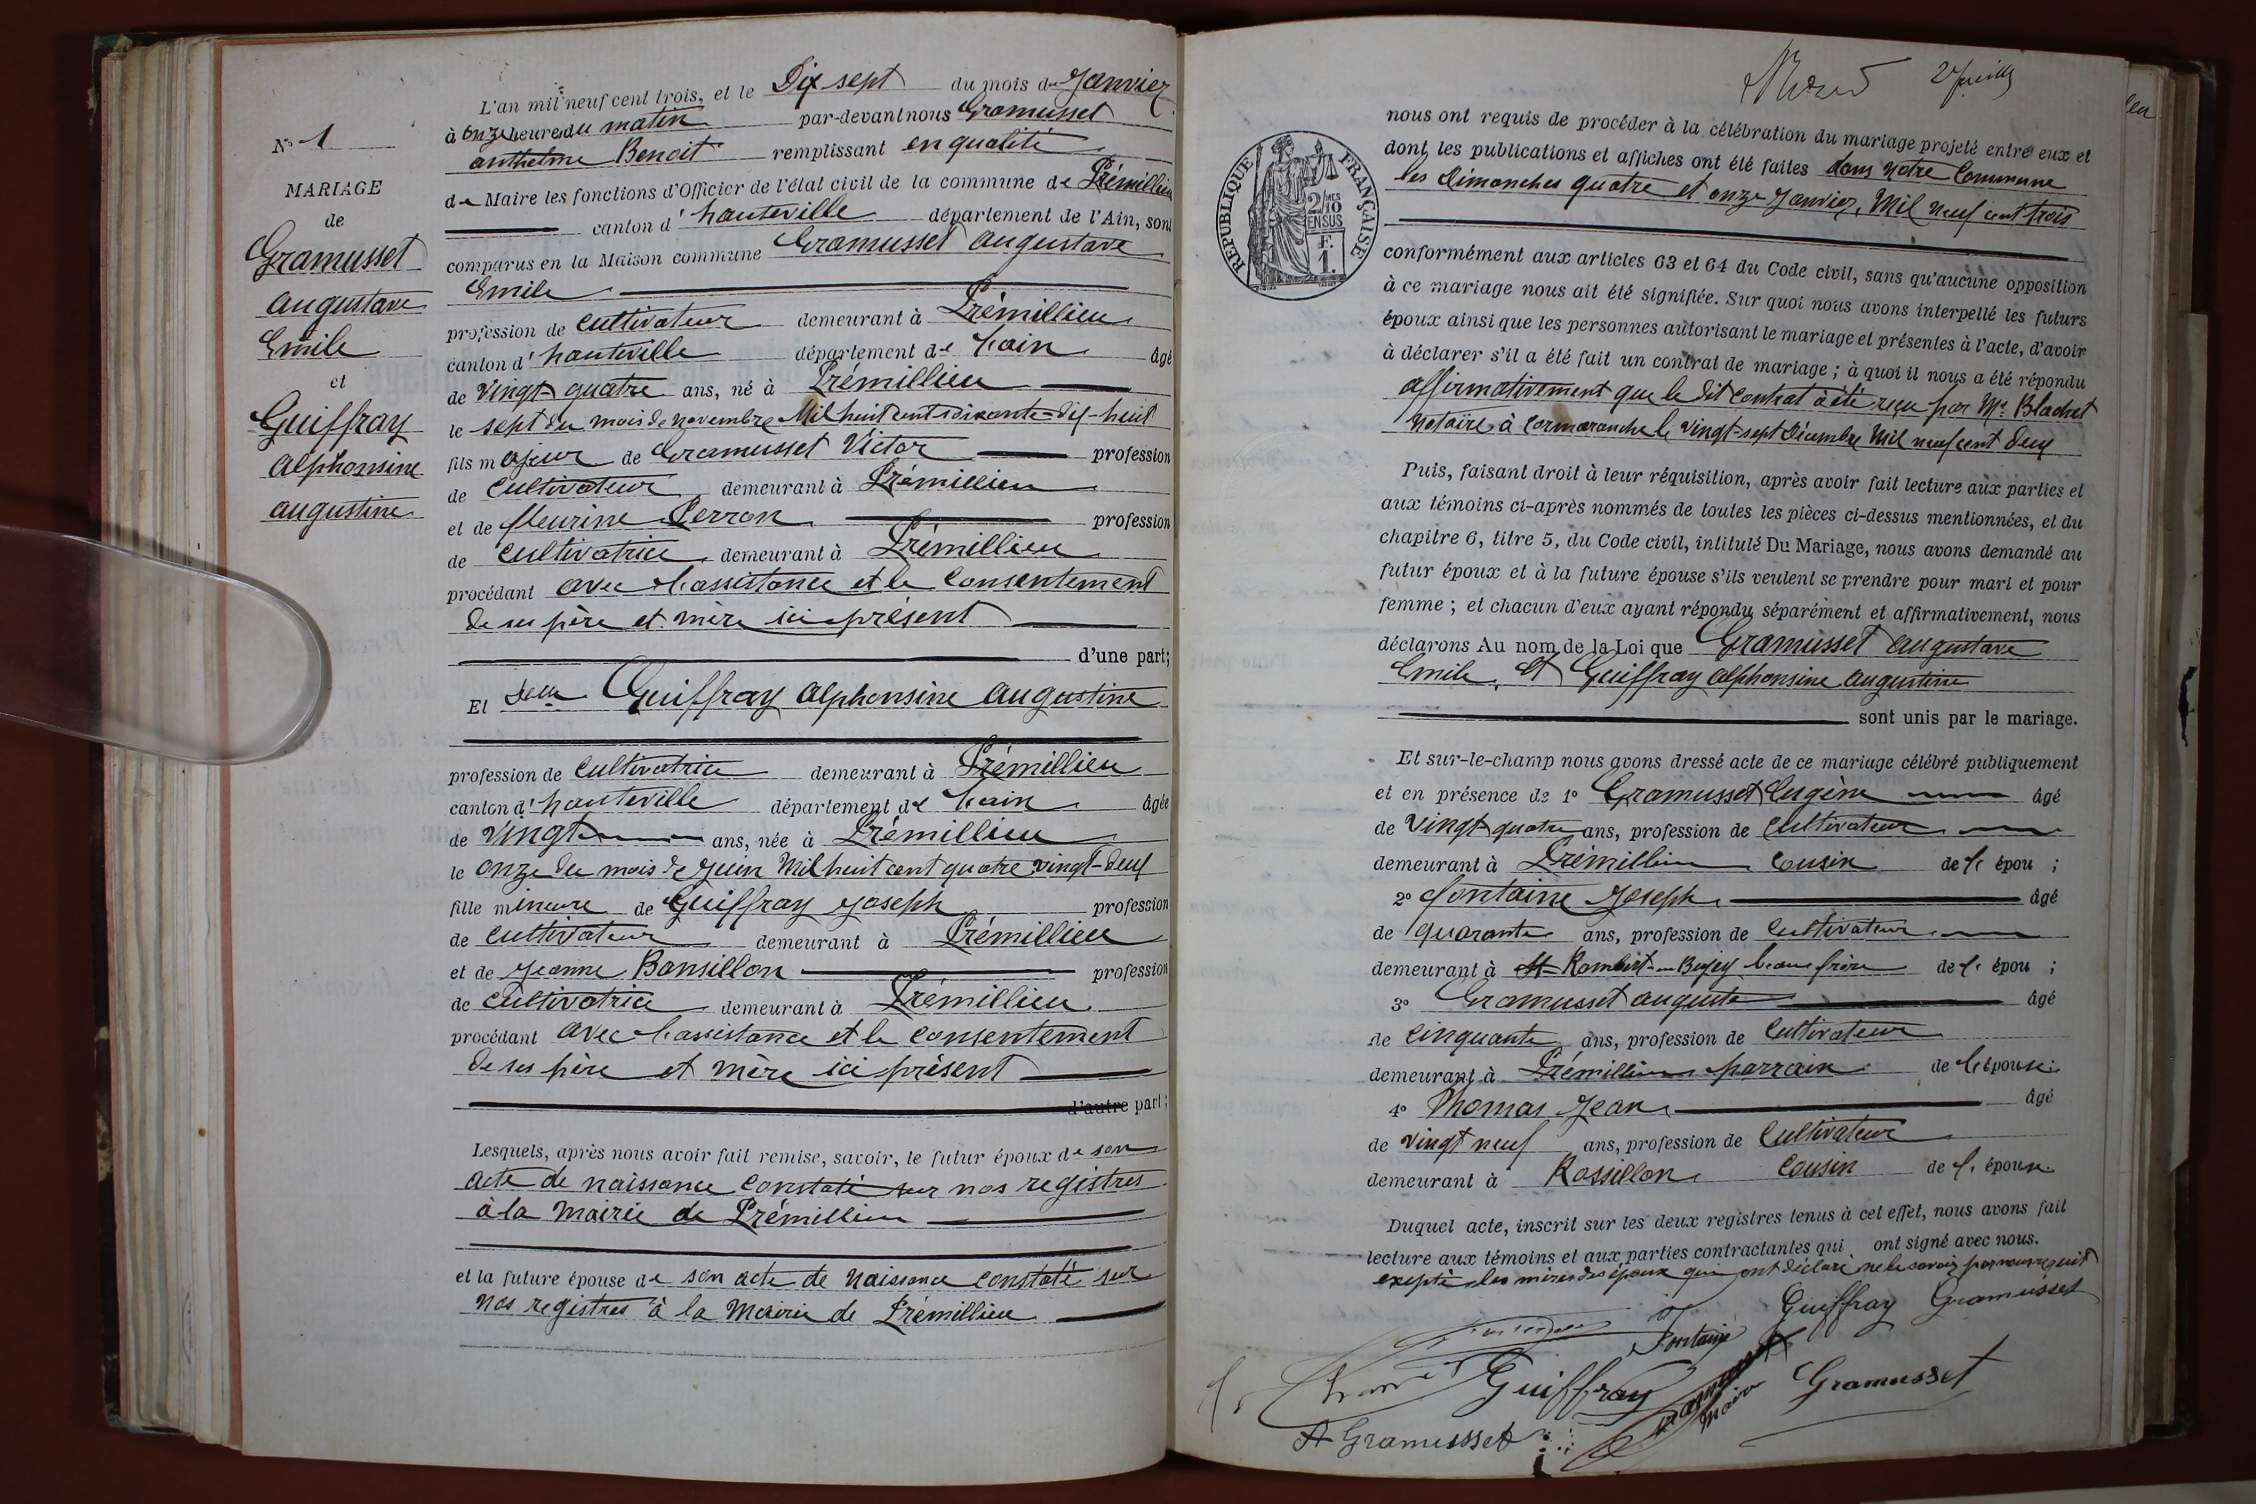 N° 1
MARIAGE
de
Gramusset
augustave
Emile
et
Guiffray
alphonsine
augustine
L'an mil neuf cent trois, et le Dix sept du mois de Janvier
à onze heures du matin par-devant nous Gramusset
anthelme Benoit remplissant en qualité
de Maire les fonctions d'Officier de l'état civil de la commune de Prémillieu
canton d' hauteville département de l'Ain, sont
comparus en la Maison commune Gramusset augustave
Emile
profession de cultivateur demeurant à Prémillieu
canton d' hauteville département de l'ain âgé
de vingt-quatre ans, né à Prémillieu
le sept du mois de novembre Mil huit cent soixante-dix-huit
fils majeur de Gramusset Victor profession
de cultivateur demeurant à Prémillieu
et de fleurine Perron profession
de cultivatrice demeurant à Prémillieu
procédant avec l'assistance et le consentement
de ses père et mère ici présent
d'une part;
Et Delle Guiffray alphonsine augustine
profession de cultivatrice demeurant à Prémillieu
canton d' hauteville département de l'ain âgée
de vingt ans, née à Prémillieu
le onze du mois de Juin Mil huit cent quatre vingt-deux
fille mineure de Guiffray Joseph profession
de cultivateur demeurant à Prémillieu
et de Jeanne Bonsillon profession
de cultivatrice demeurant à Prémillieu
procédant avec l'assistance et le consentement
de ses père et mère ici présent
d'autre part;
Lesquels, après nous avoir fait remise, savoir, le futur époux de son
acte de naissance constaté sur nos registres
à la mairie de Prémillieu
et la future épouse de son acte de naissance constaté sur
nos registres à la mairie de Prémillieu
RÉPUBLIQUE FRANÇAISE
2/10 MES
EN SUS
F.
1.
nous ont requis de procéder à la célébration du mariage projeté entre eux et
dont les publications et affiches ont été faites dans notre Commune
les Dimanches quatre et onze Janvier, Mil neuf cent trois
conformément aux articles 63 et 64 du Code civil, sans qu'aucune opposition
à ce mariage nous ait été signifiée. Sur quoi nous avons interpellé les futurs
époux ainsi que les personnes autorisant le mariage et présentes à l'acte, d'avoir
à déclarer s'il a été fait un contrat de mariage ; à quoi il nous a été répondu
affirmativement que le dit contrat à été reçu par Me Blachet
notaire à Cormaranche le vingt-sept Décembre Mil neuf cent deux
Puis, faisant droit à leur réquisition, après avoir fait lecture aux parties et
aux témoins ci-après nommés de toutes les pièces ci-dessus mentionnées, et du
chapitre 6, titre 5, du Code civil, intitulé Du Mariage, nous avons demandé au
futur époux et à la future épouse s'ils veulent se prendre pour mari et pour
femme ; et chacun d'eux ayant répondu séparément et affirmativement, nous
déclarons Au nom de la Loi que Gramusset augustave
Emile, et Guiffray alphonsine augustine
sont unis par le mariage.
Et sur-le-champ nous avons dressé acte de ce mariage célébré publiquement
et en présence de 1° Gramusset Eugène âgé
de vingt-quatre ans, profession de cultivateur
demeurant à Prémillieu cousin de l' épou ;
2° fontaine Joseph âgé
de quarante ans, profession de cultivateur
demeurant à St-Rambert-en-Bugey beau frère de l' épou ;
3° Gramusset auguste âgé
de cinquante ans, profession de cultivateur
demeurant à Prémillieu parrain de l'épouse.
4° Thomas Jean âgé
de vingt neuf ans, profession de Cultivateur
demeurant à Rossillon cousin de l' épouse
Duquel acte, inscrit sur les deux registres tenus à cet effet, nous avons fait
lecture aux témoins et aux parties contractantes qui ont signé avec nous.
excepté les mères des époux qui ont déclaré ne le savoir par nous requit
Fontaine Guiffray Gramusset
Thomas Guiffray Gramusset
Maire
A Gramusset